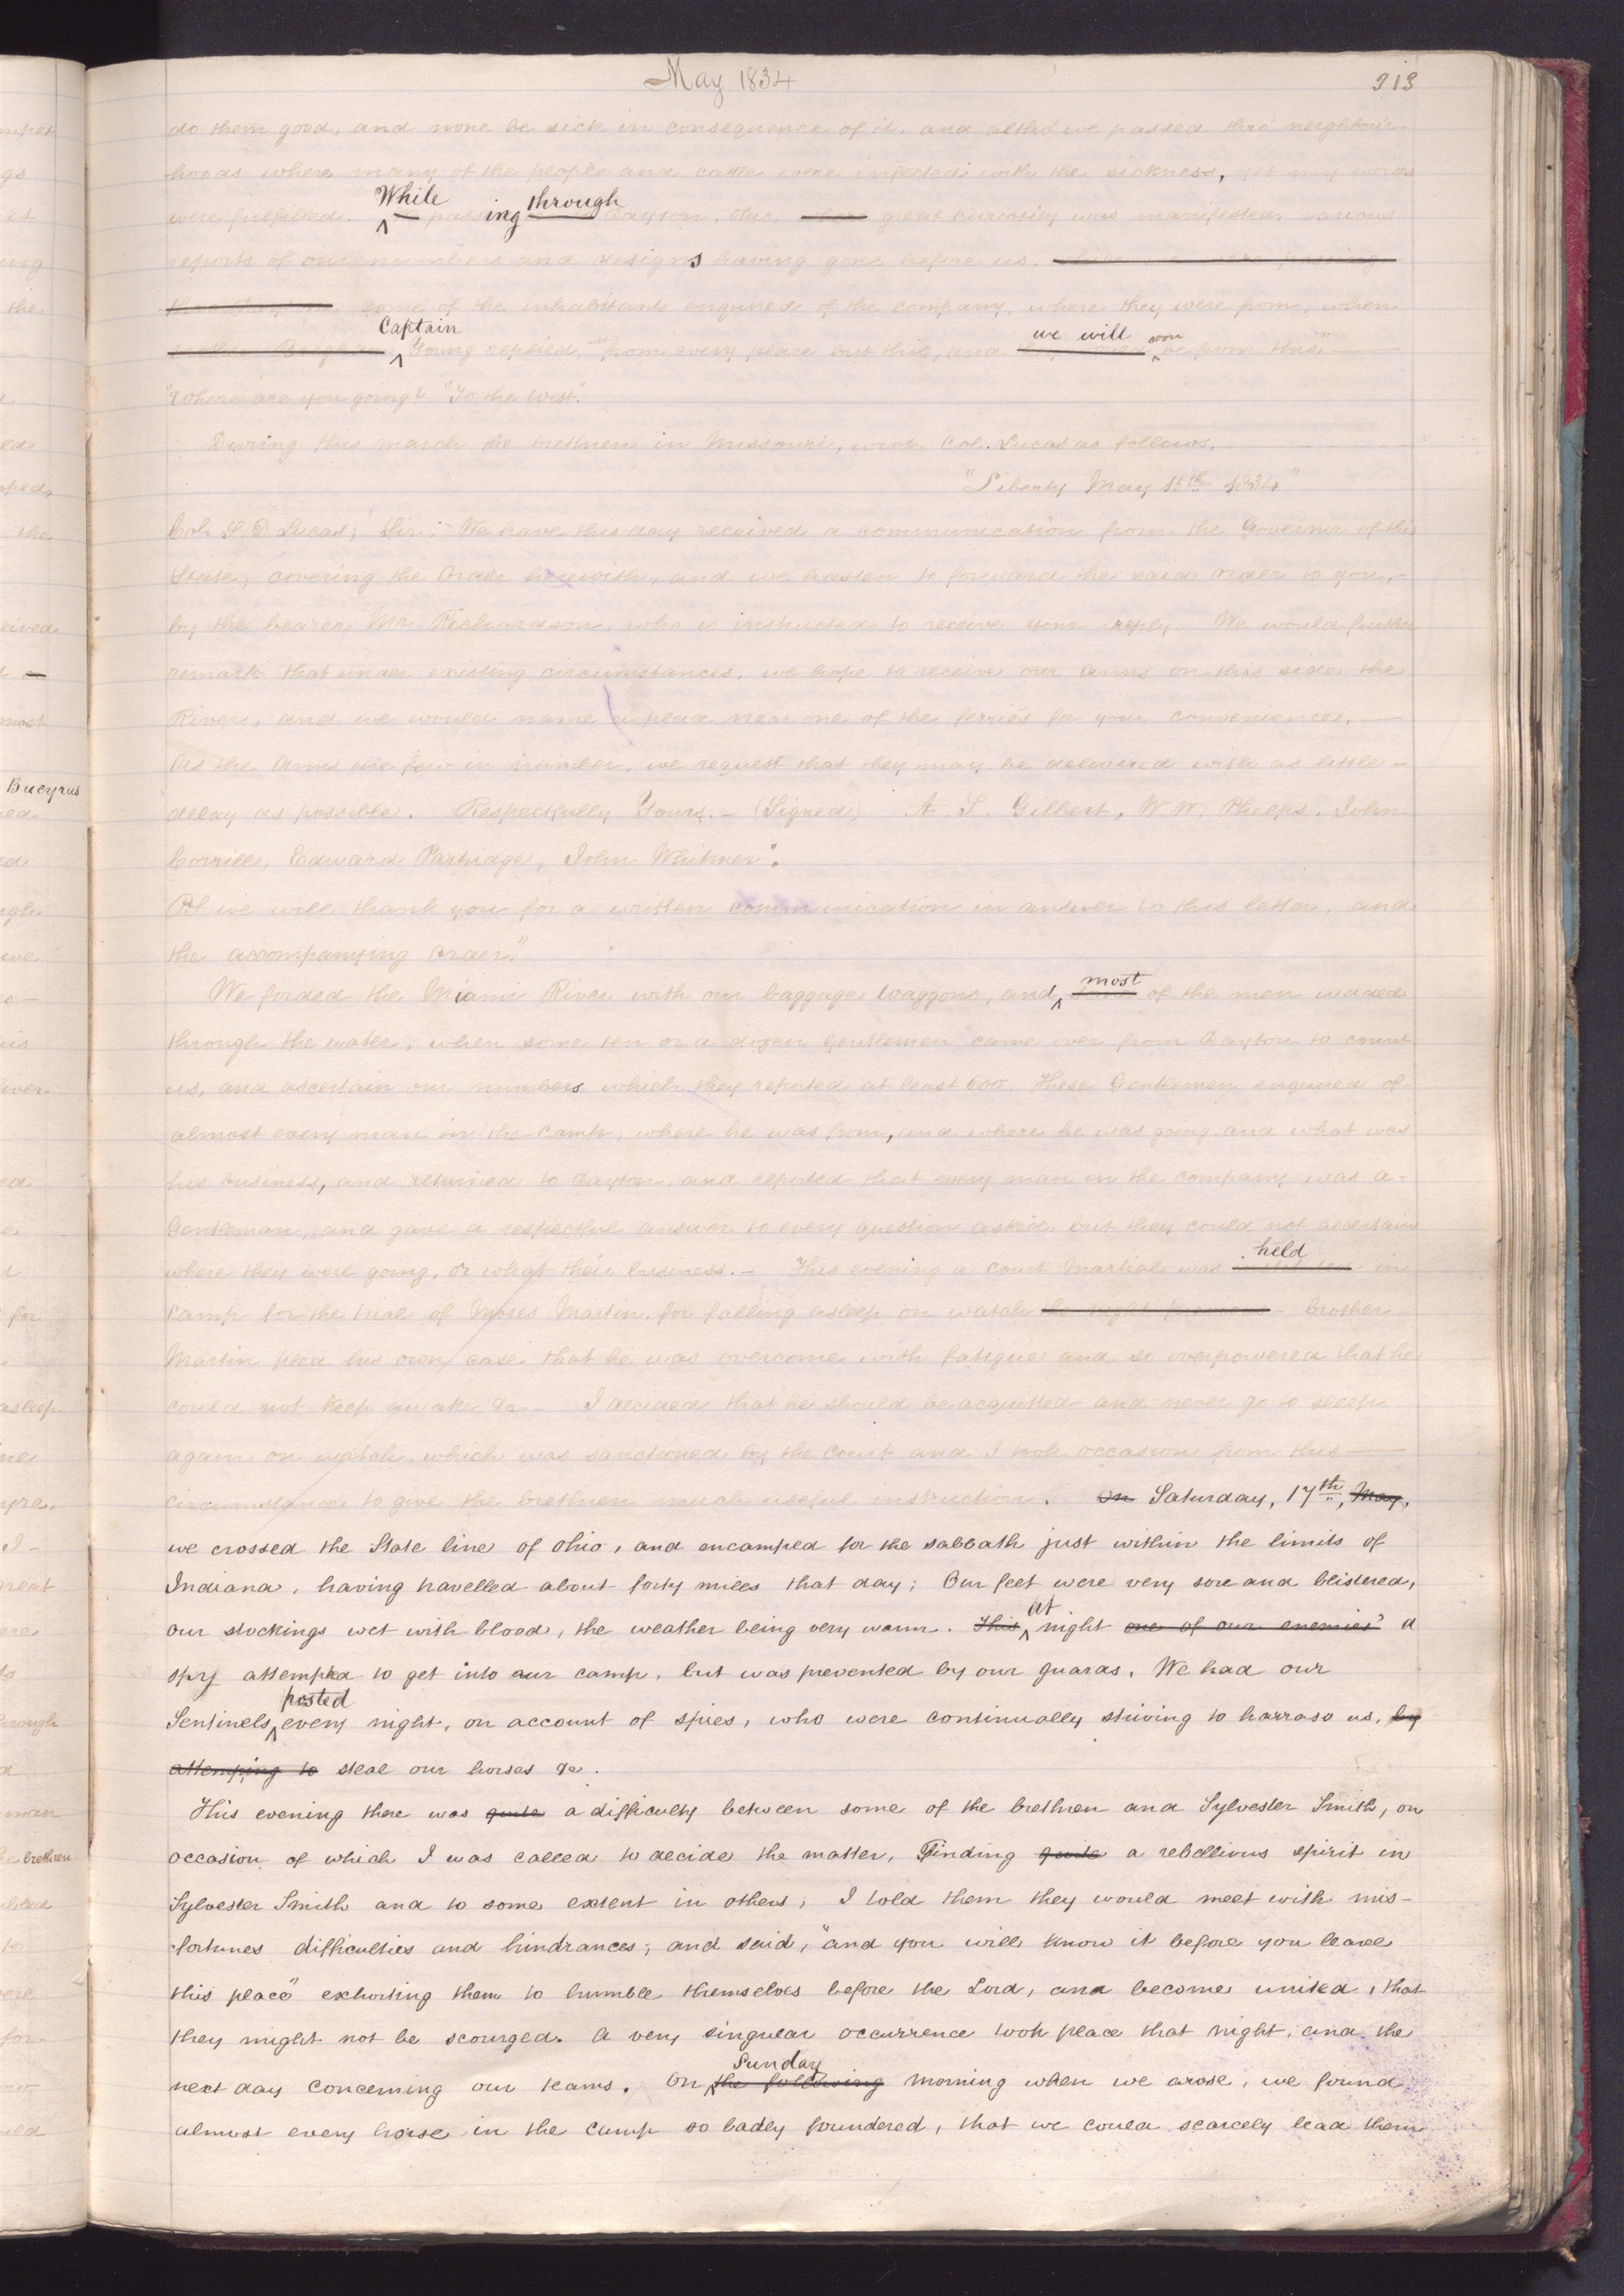 May 1834
313
do them good, and none be sick in consequence of it, and altho' we passed thro' neighbour-
hoods where many of the people and cattle were infected with the sickness, yet my words
While through
were fulfilled. ^ passing Dayton, Ohio, great curiosity was manifested, various
reports of our numbers and designs having gone before us.
some of the inhabitants enquired of the company, where they were from, when
Captain we will soon
^ Young replied, "from every place but this, and ^ be from this"
"Where are you going?" "To the West."
During this march the brethren in Missouri, wrote Col. Lucas as follows.
"Liberty May 15th 1834"
Col. S. D. Lucas; Sir: We have this day received a communication from the Governor of this
State, covering the Order herewith, and we hasten to forward the said order to you,
by the bearer Mr Richardson, who is instructed to receive your reply. We would further
remark that under existing circumstances, we hope to receive our Arms on this side the
River, and we would name a place near one of the ferries for your convenience.
As the Arms are few in number, we request that they may be delivered with as little
delay as possible. Respectfully Yours. - (Signed) A. S. Gilbert, W. W. Phelps, John
Corrill, Edward Partridge, John Whitmer".
PS we will thank you for a written communication in answer to this letter, and
the accompanying Order."
most
We forded the Miami River with our baggage Waggons, and ^ of the men waded
through the water, when some ten or a dozen Gentlemen came over from Dayton to count
us, and ascertain our numbers which they reported at least 600. These Gentlemen enquired of
almost every man in the Camp, where he was from, and where he was going and what was
his business, and returned to Dayton, and reported that every man in the company was a
Gentleman, and gave a respectful answer to every question asked, but they could not ascertain
held
where they were going, or what their business. - This evening a Court Martial was in
camp for the trial of Moses Martin, for falling asleep on watch brother
Martin plead his own case that he was overcome with fatigue and so overpowered that he
could not keep awake &c - I decided that he should be acquitted and never go to sleep
again on watch, which was sanctioned by the Court and I took occasion from this
circumstance to give the brethren much useful instruction. On Saturday, 17th, May,
we crossed the State line of Ohio, and encamped for the sabbath just within the limits of
Indiana, having travelled about forty miles that day; Our feet were very sore and blistered,
at
our stockings wet with blood, the weather being very warm. This ^ night one of our enemies' a
spy attempted to get into our camp, but was prevented by our guards. We had our
posted
Sentinels ^ every night, on account of spies, who were continually striving to harrass us, by
attemping to steal our horses &c.
This evening there was quite a difficulty between some of the brethren and Sylvester Smith, on
occasion of which I was called to decide the matter, Finding quite a rebellious spirit in
Sylvester Smith and to some extent in others, I told them they would meet with mis-
fortunes difficulties and hindrances; and said, "and you will know it before you leave
this place" exhorting them to humble themselves before the Lord, and become united, that
they might not be scourged. A very singular occurrence took place that night, and the
Sunday
next day concerning our teams. On ^ the following morning when we arose, we found
almost every horse in the camp so badly foundered, that we could scarcely lead them
Bucyrus
brethren
asleep